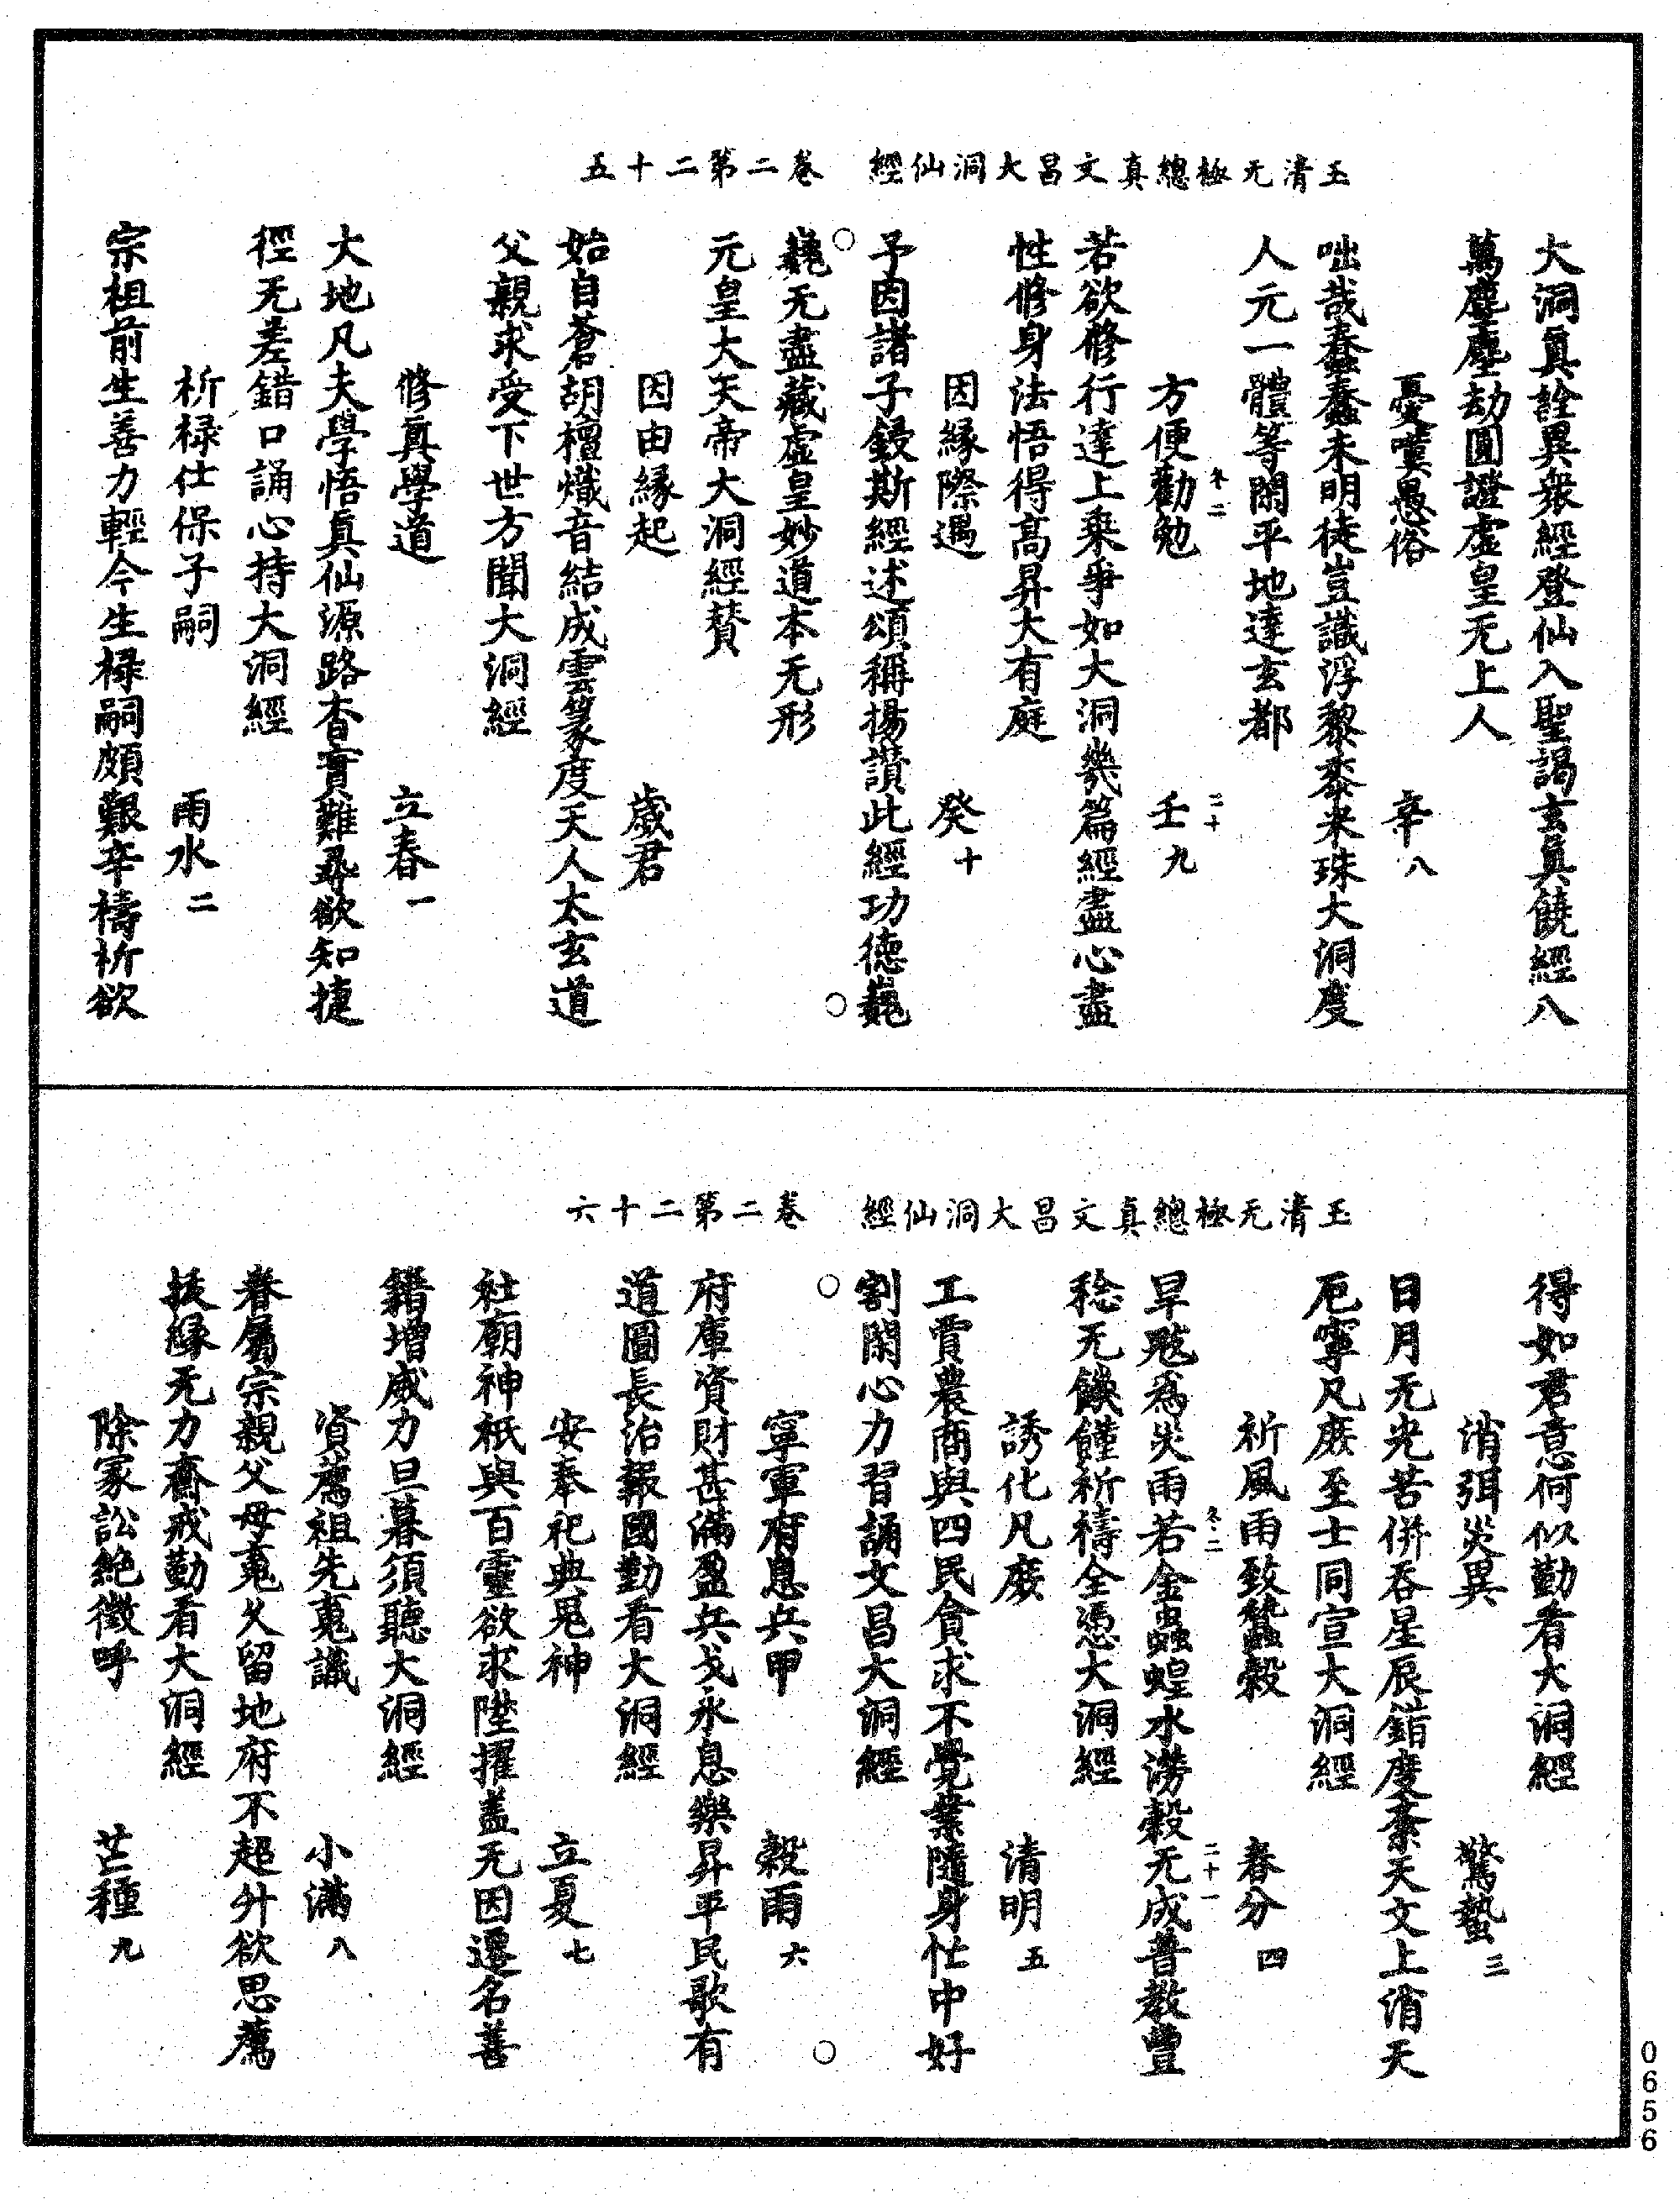 玉清无極總真文昌大洞仙經　卷二第二十五
大洞眞詮異衆經登仙入聖謁玄眞饒經八
萬塵塵劫圓證虛皇无上人
憂嘆愚俗　辛八
咄哉蠢蠢未明徒豈識浮黎黍米珠大洞度
人元一體等閑平地達玄都
方便勸勉　壬九
若欲修行達上乘爭如大洞幾篇經盡心盡
性修身法悟得高昇大有庭
因緣際遇　癸十
予因諸子鋟斯經述頌稱揚讚此經功德巍
巍无盡藏虛皇妙道本无形
元皇大天帝大洞經贊
因由緣起　歲君
始自蒼胡檀熾音結成雲篆度天人太玄道
父親求受下世方聞大洞經
修眞學道　立春一
大地凡夫學悟眞仙源路杳實難尋欲知捷
徑无差錯口誦心持大洞經
祈祿仕保子嗣　雨水二
宗祖前生善力輕今生祿嗣頗艱辛禱祈欲
玉清无極總真文昌大洞仙經　卷二第二十六
得如君意何似勤看大洞經
消弭災異　驚蟄三
日月无光苦併吞星辰錯度紊天文上消天
厄寧凡庶至士同宣大洞經
祈風雨致蠶穀　春分四
旱魃爲災雨若金蟲蝗水澇穀无成普教豐
稔无饑饉祈禱全憑大洞經
誘化凡庶　清明五
工賈農商與四民貪求不覺業隨身忙中好
割閑心力習誦文昌大洞經
寧軍府息兵甲　穀雨六
府庫資財甚滿盈兵戈永息樂昇平民歌有
道圖長治報國勤看大洞經
安奉祀典鬼神　立夏七
社廟神祇與百靈欲求陞擢盖无因遷名善
籍增威力旦暮須聽大洞經
資薦祖先䰟識　小滿八
眷屬宗親父母䰟久留地府不超升欲思薦
拔緣无力齋戒勤看大洞經
除冢訟絕徵呼　芒種九
冬二
二十
冬二
二十一
0656